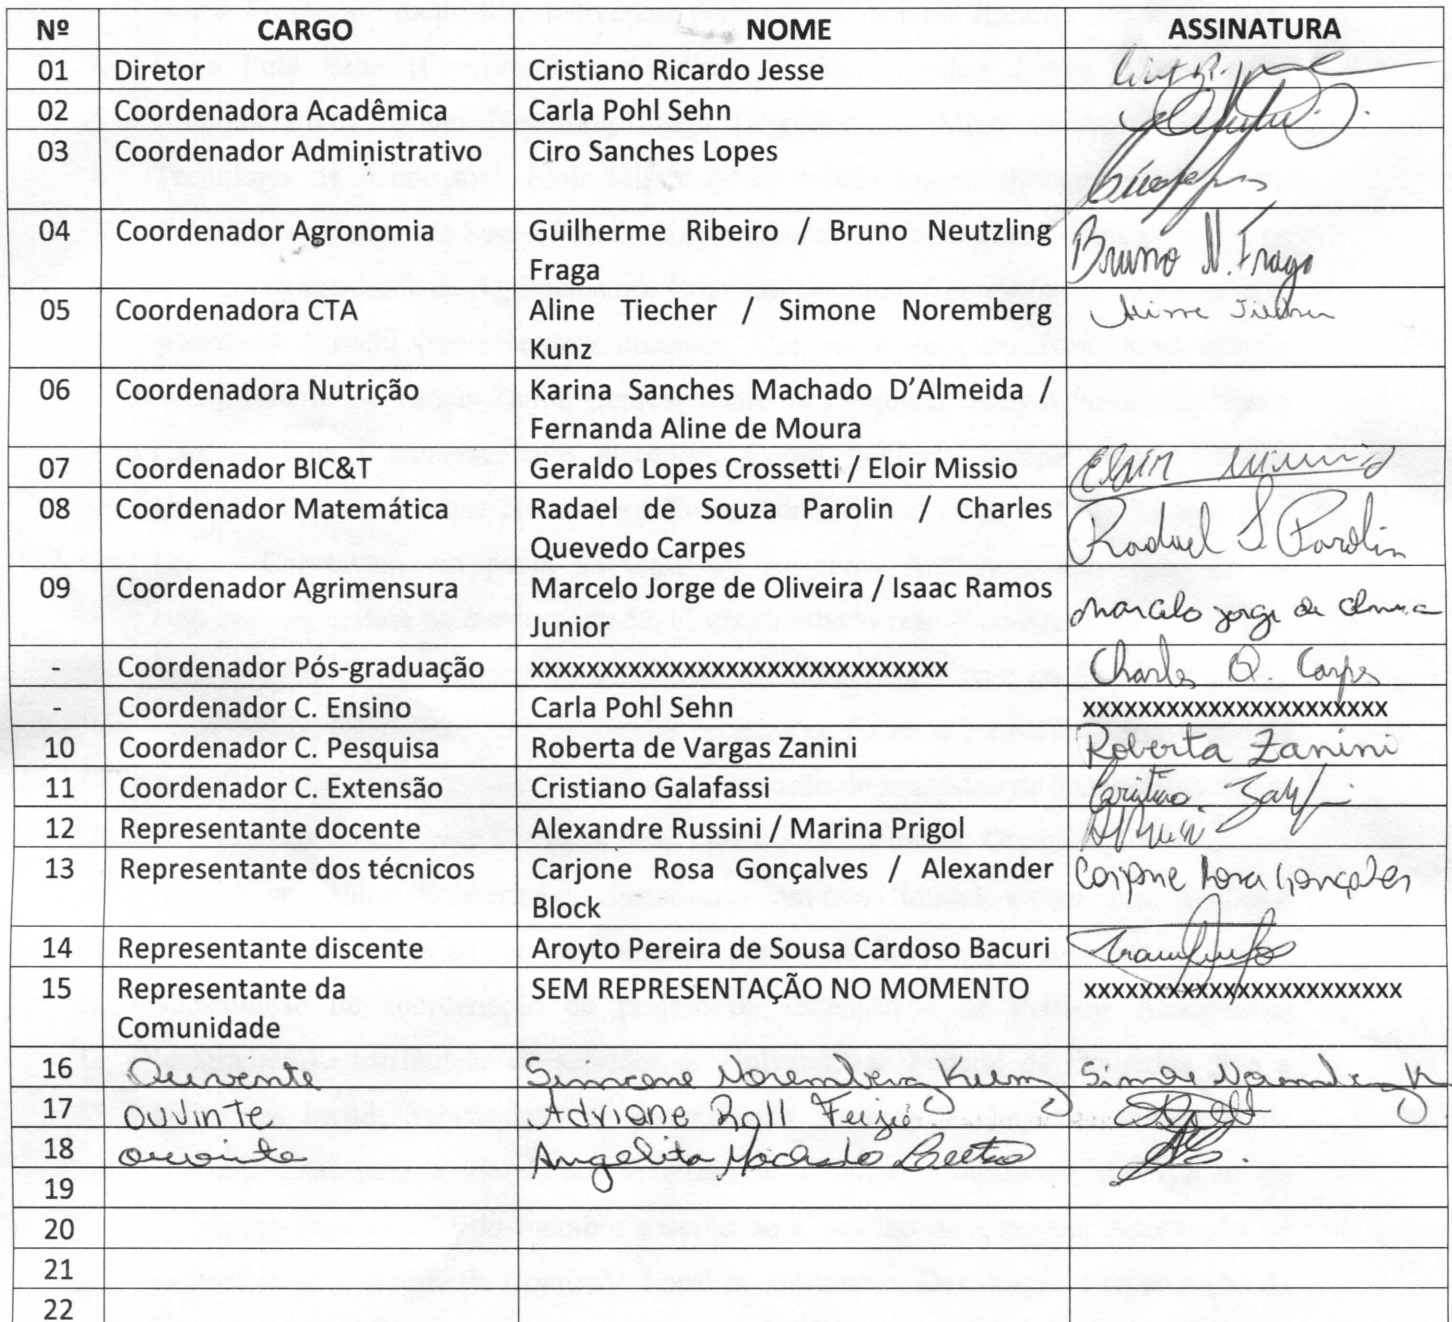 Nº CARGO NOME ASSINATURA
01 Diretor Cristiano Ricardo Jesse
02 Coordenadora Acadêmica Carla Pohl Sehn
03 Coordenador Administrativo Ciro Sanches Lopes
04 Coordenador Agronomia Guilherme Ribeiro / Bruno Neutzling Bruno N. Fraga
Fraga
05 Coordenadora CTA Aline Tiecher / Simone Noremberg Aline Tiecher
Kunz
06 Coordenadora Nutrição Karina Sanches Machado D'Almeida /
Fernanda Aline de Moura
07 Coordenador BIC&T Geraldo Lopes Crossetti / Eloir Missio Eloir Missio
08 Coordenador Matemática Radael de Souza Parolin / Charles Radael S Parolin
Quevedo Carpes
09 Coordenador Agrimensura Marcelo Jorge de Oliveira / Isaac Ramos Marcelo Jorge de Oliveira
Junior
- Coordenador Pós-graduação xxxxxxxxxxxxxxxxxxxxxxxxxxxxxx Charles Q Carpes
- Coordenador C. Ensino Carla Pohl Sehn xxxxxxxxxxxxxxxxxxxxxx
10 Coordenador C. Pesquisa Roberta de Vargas Zanini Roberta Zanini
11 Coordenador C. Extensão Cristiano Galafassi
12 Representante docente Alexandre Russini / Marina Prigol
13 Representante dos técnicos Carjone Rosa Gonçalves / Alexander Carjone Rosa Gonçalves
Block
14 Representante discente Aroyto Pereira de Sousa Cardoso Bacuri
15 Representante da SEM REPRESENTAÇÃO NO MOMENTO xxxxxxxxxxxxxxxxxxxxxxx
Comunidade
16 Ouvinte Simone Noremberg Kunz Simone Noremberg K
17 OUVINTE Adriane
18 ouvinte Angelita Machado
19
20
21
22